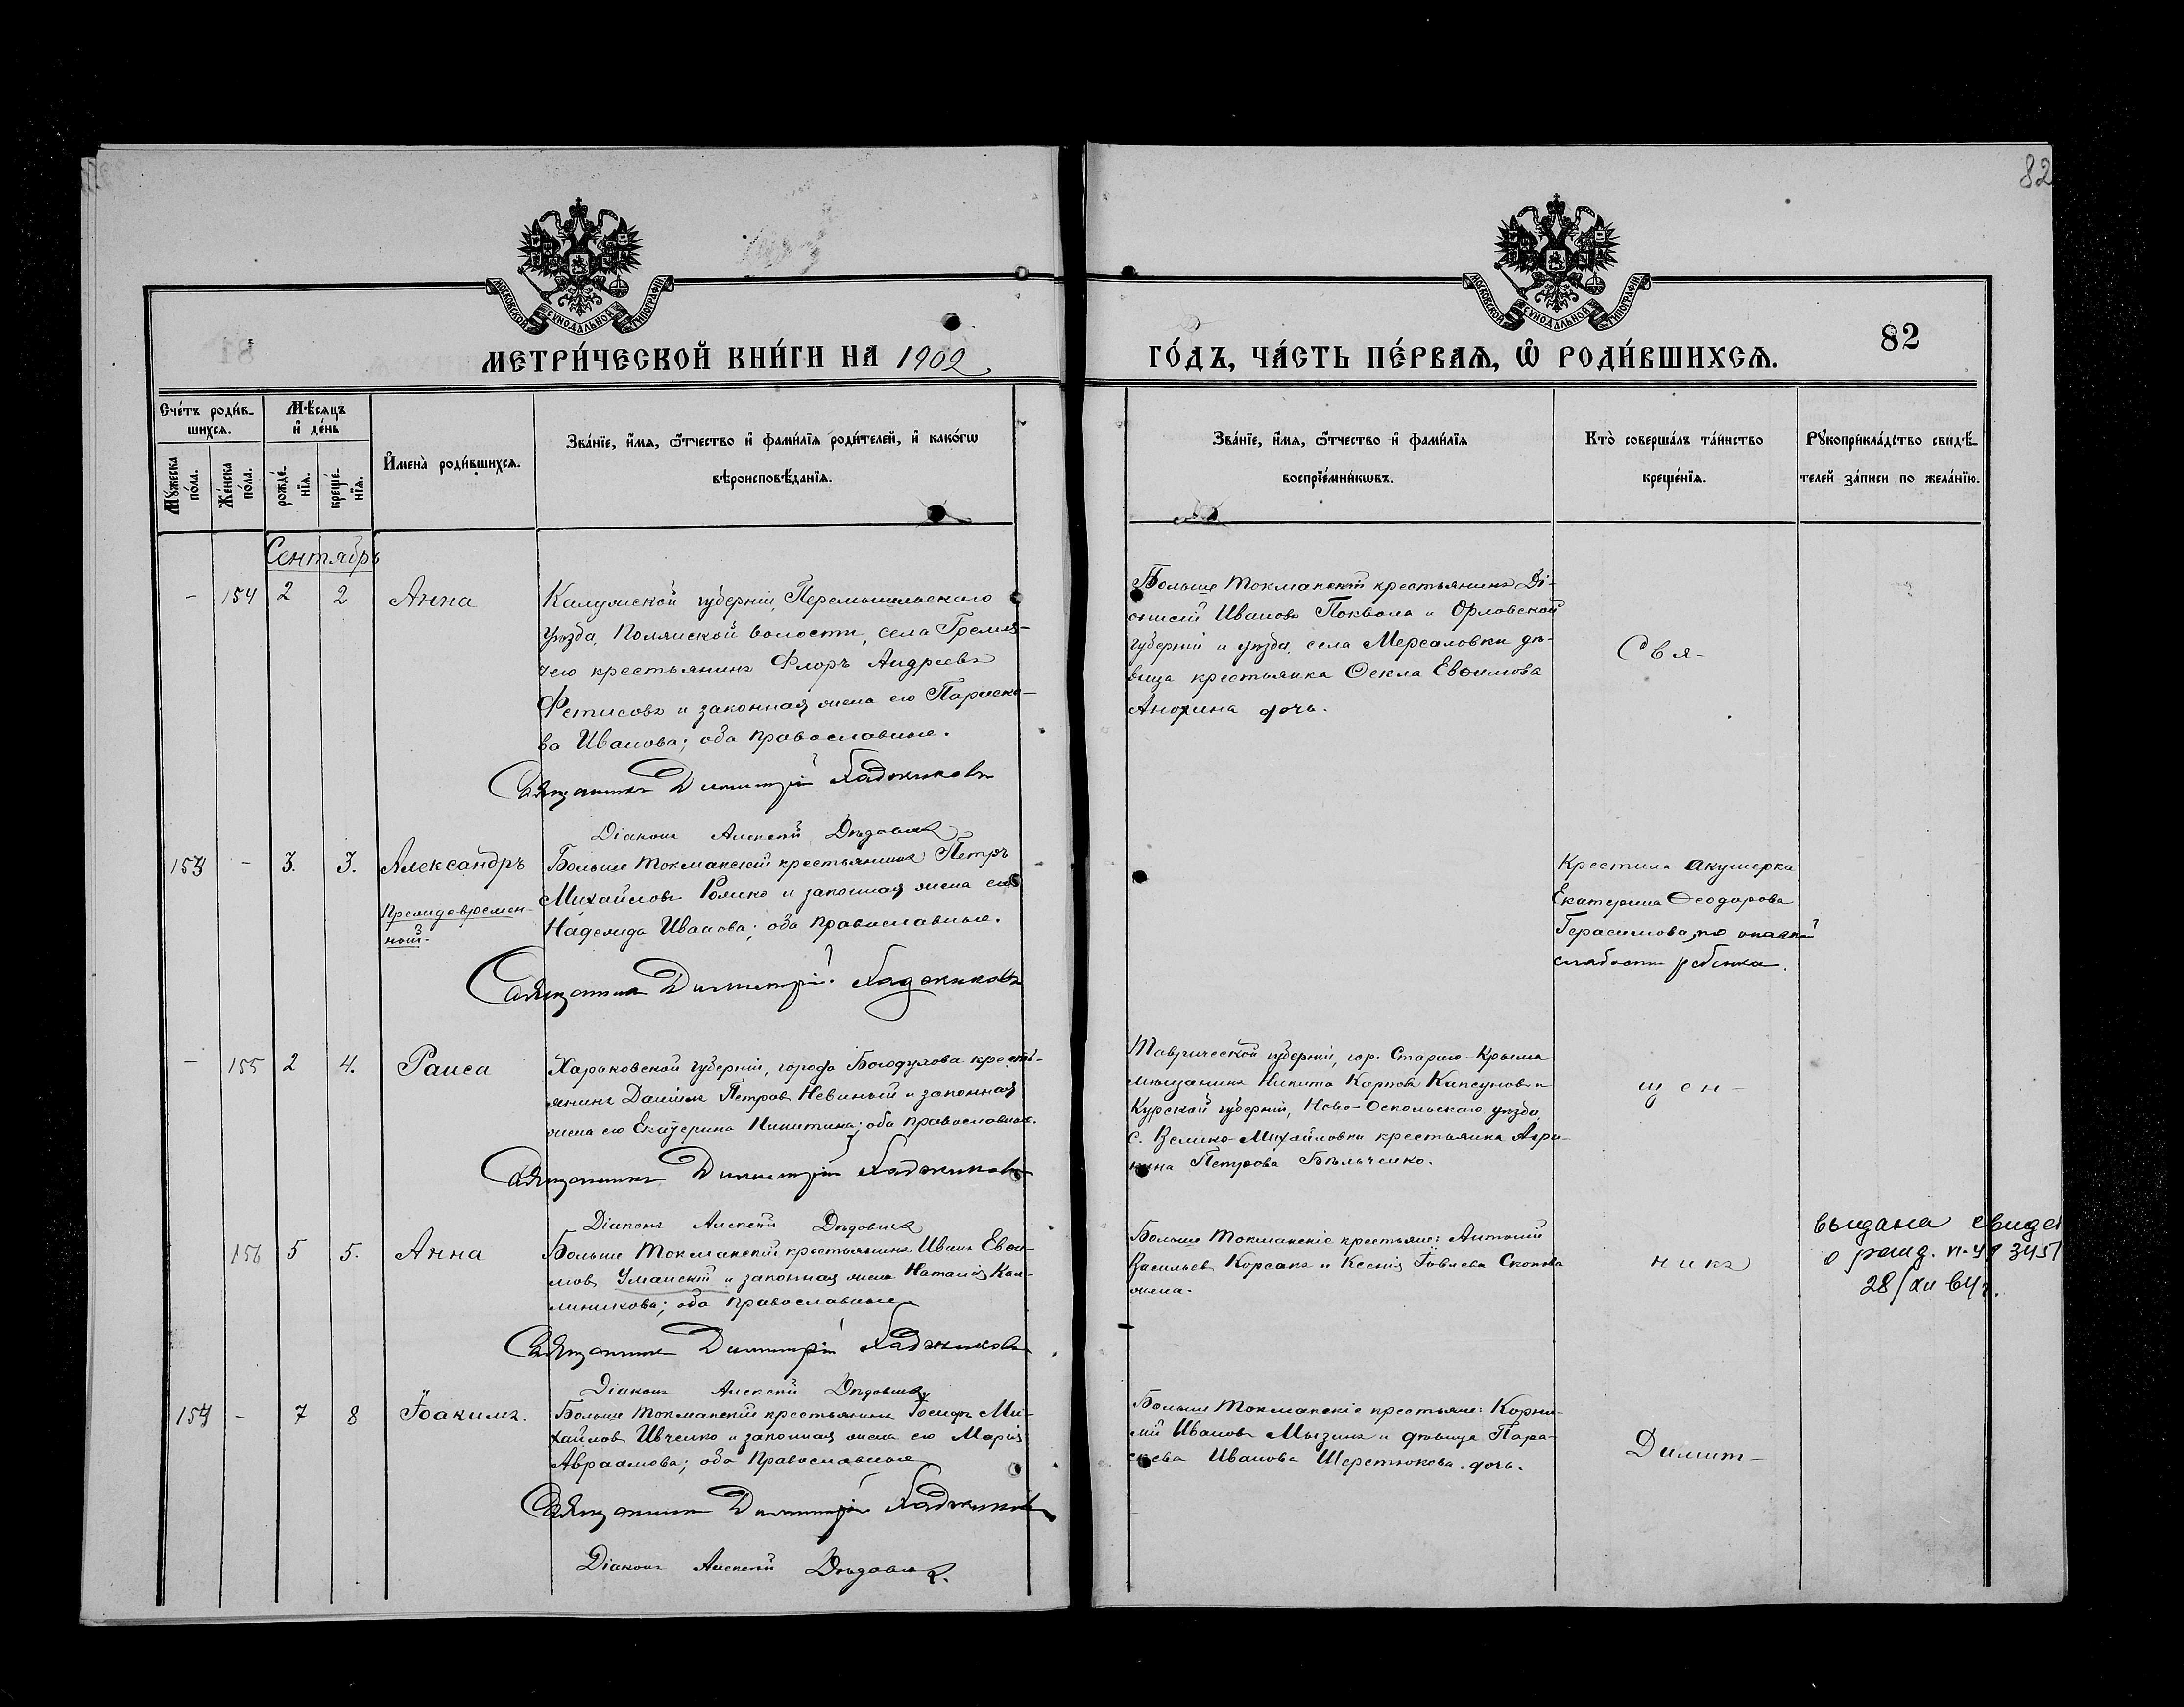 82
МОСКОВСКОЙ СѴНОДАЛЬНОЙ ТИПОГРАФІИ
МОСКОВСКОЙ СѴНОДАЛЬНОЙ ТИПОГРАФІИ
МЕТРИ́ЧЕСКОЙ КНИ́ГИ НА 1902
ГО́ДЪ, ЧА́СТЬ ПЕ́РВАѦ, Ѽ РОДИ́ВШИХСѦ.
82
Сче́тъ роди́в-
шихсѧ.
Мꙋ́жеска по́ла.
Же́нска по́ла.
Мѣ́сяцъ и҆ де́нь
рожде́-нїѧ.
креще́-нїѧ.
И҆мена̀ роди́вшихсѧ.
Зва́нїе, и҆́мѧ, ѻ҆́тчество и҆ фами́лїѧ роди́телей, и҆ како́гѡ
вѣроисповѣ́данїѧ.
Зва́нїе, и҆́мѧ, ѻ҆́тчество и҆ фами́лїѧ
воспрїе́мникѡвъ.
Кто̀ соверша́лъ та́инство
креще́нїѧ.
Рꙋкоприкла́дство свидѣ́-
телей за́писи по жела́нїю.
Сентябрь
- 154 2 2 Анна
Калужской губерніи, Перемышльскаго
уѣзда, Полянской волости, села Гремя-
чего крестьянинъ Флоръ Андреевъ
Фетисовъ и законная жена его Параске-
ва Иванова; оба православные.
Священникъ Димитрій Хаджиковъ
Діаконъ Алексѣй
Больше Токмакскій крестьянинъ Ді-
онисій Ивановъ Поквола и Орловской
губерніи и уѣзда, села Мерсаловки дѣ-
вица крестьянка Ѳекла Евѳимова
Анохина дочь.
Свя-
153 - 3. 3. Александръ
Преждевремен-
ный.
Больше Токмакскій крестьянинъ Петръ
Михайловъ Ромко и законная жена его
Надежда Иванова; оба православные.
Священникъ Димитрій Хаджиковъ
Крестила акушерка
Екатерина Ѳеодорова
Герасимова, по опасной
слабости ребенка.
- 155 2 4. Раиса
Харьковской губерніи, города Богодухова кресть-
янинъ Даніилъ Петровъ Невиный и законная
жена его Екатерина Никитина; оба православные.
Священникъ Димитрій Хаджиковъ
Діаконъ Алексѣй
Таврической губерніи, гор. Стараго-Крыма
мѣщанинъ Никита Карповъ Капсуновъ и
Курской губерніи, Ново-Оскольскаго уѣзда,
с. Велико-Михайловки крестьянка Агри-
пина Петрова Бѣльченко.
щен-
156 5 5. Анна
Больше Токмакскій крестьянинъ Иванъ Евѳи-
мовъ Уманскій и законная жена Наталія Кал-
линикова; оба православные
Священникъ Димитрій Хаджиковъ
Діаконъ Алексѣй
Больше Токмакскіе крестьяне: Антоній
Васильевъ Корсакъ и Ксенія Іовлева Скопова
жена.
никъ
выдана свидет
о рожд. 3451
28/XII 64г.
154 - 7 8 Іоакимъ.
Больше Токмакскій крестьянинъ Іосифъ Ми-
хайловъ Ивченко и законная жена его Марія
Авраамова; оба Православные
Священникъ Димитрій Хаджиковъ
Діаконъ Алексѣй
Больше Токмакскіе крестьяне: Корни-
лій Ивановъ Мызинъ и дѣвица Пара-
скева Иванова Шерстюкова дочь.
Димит-